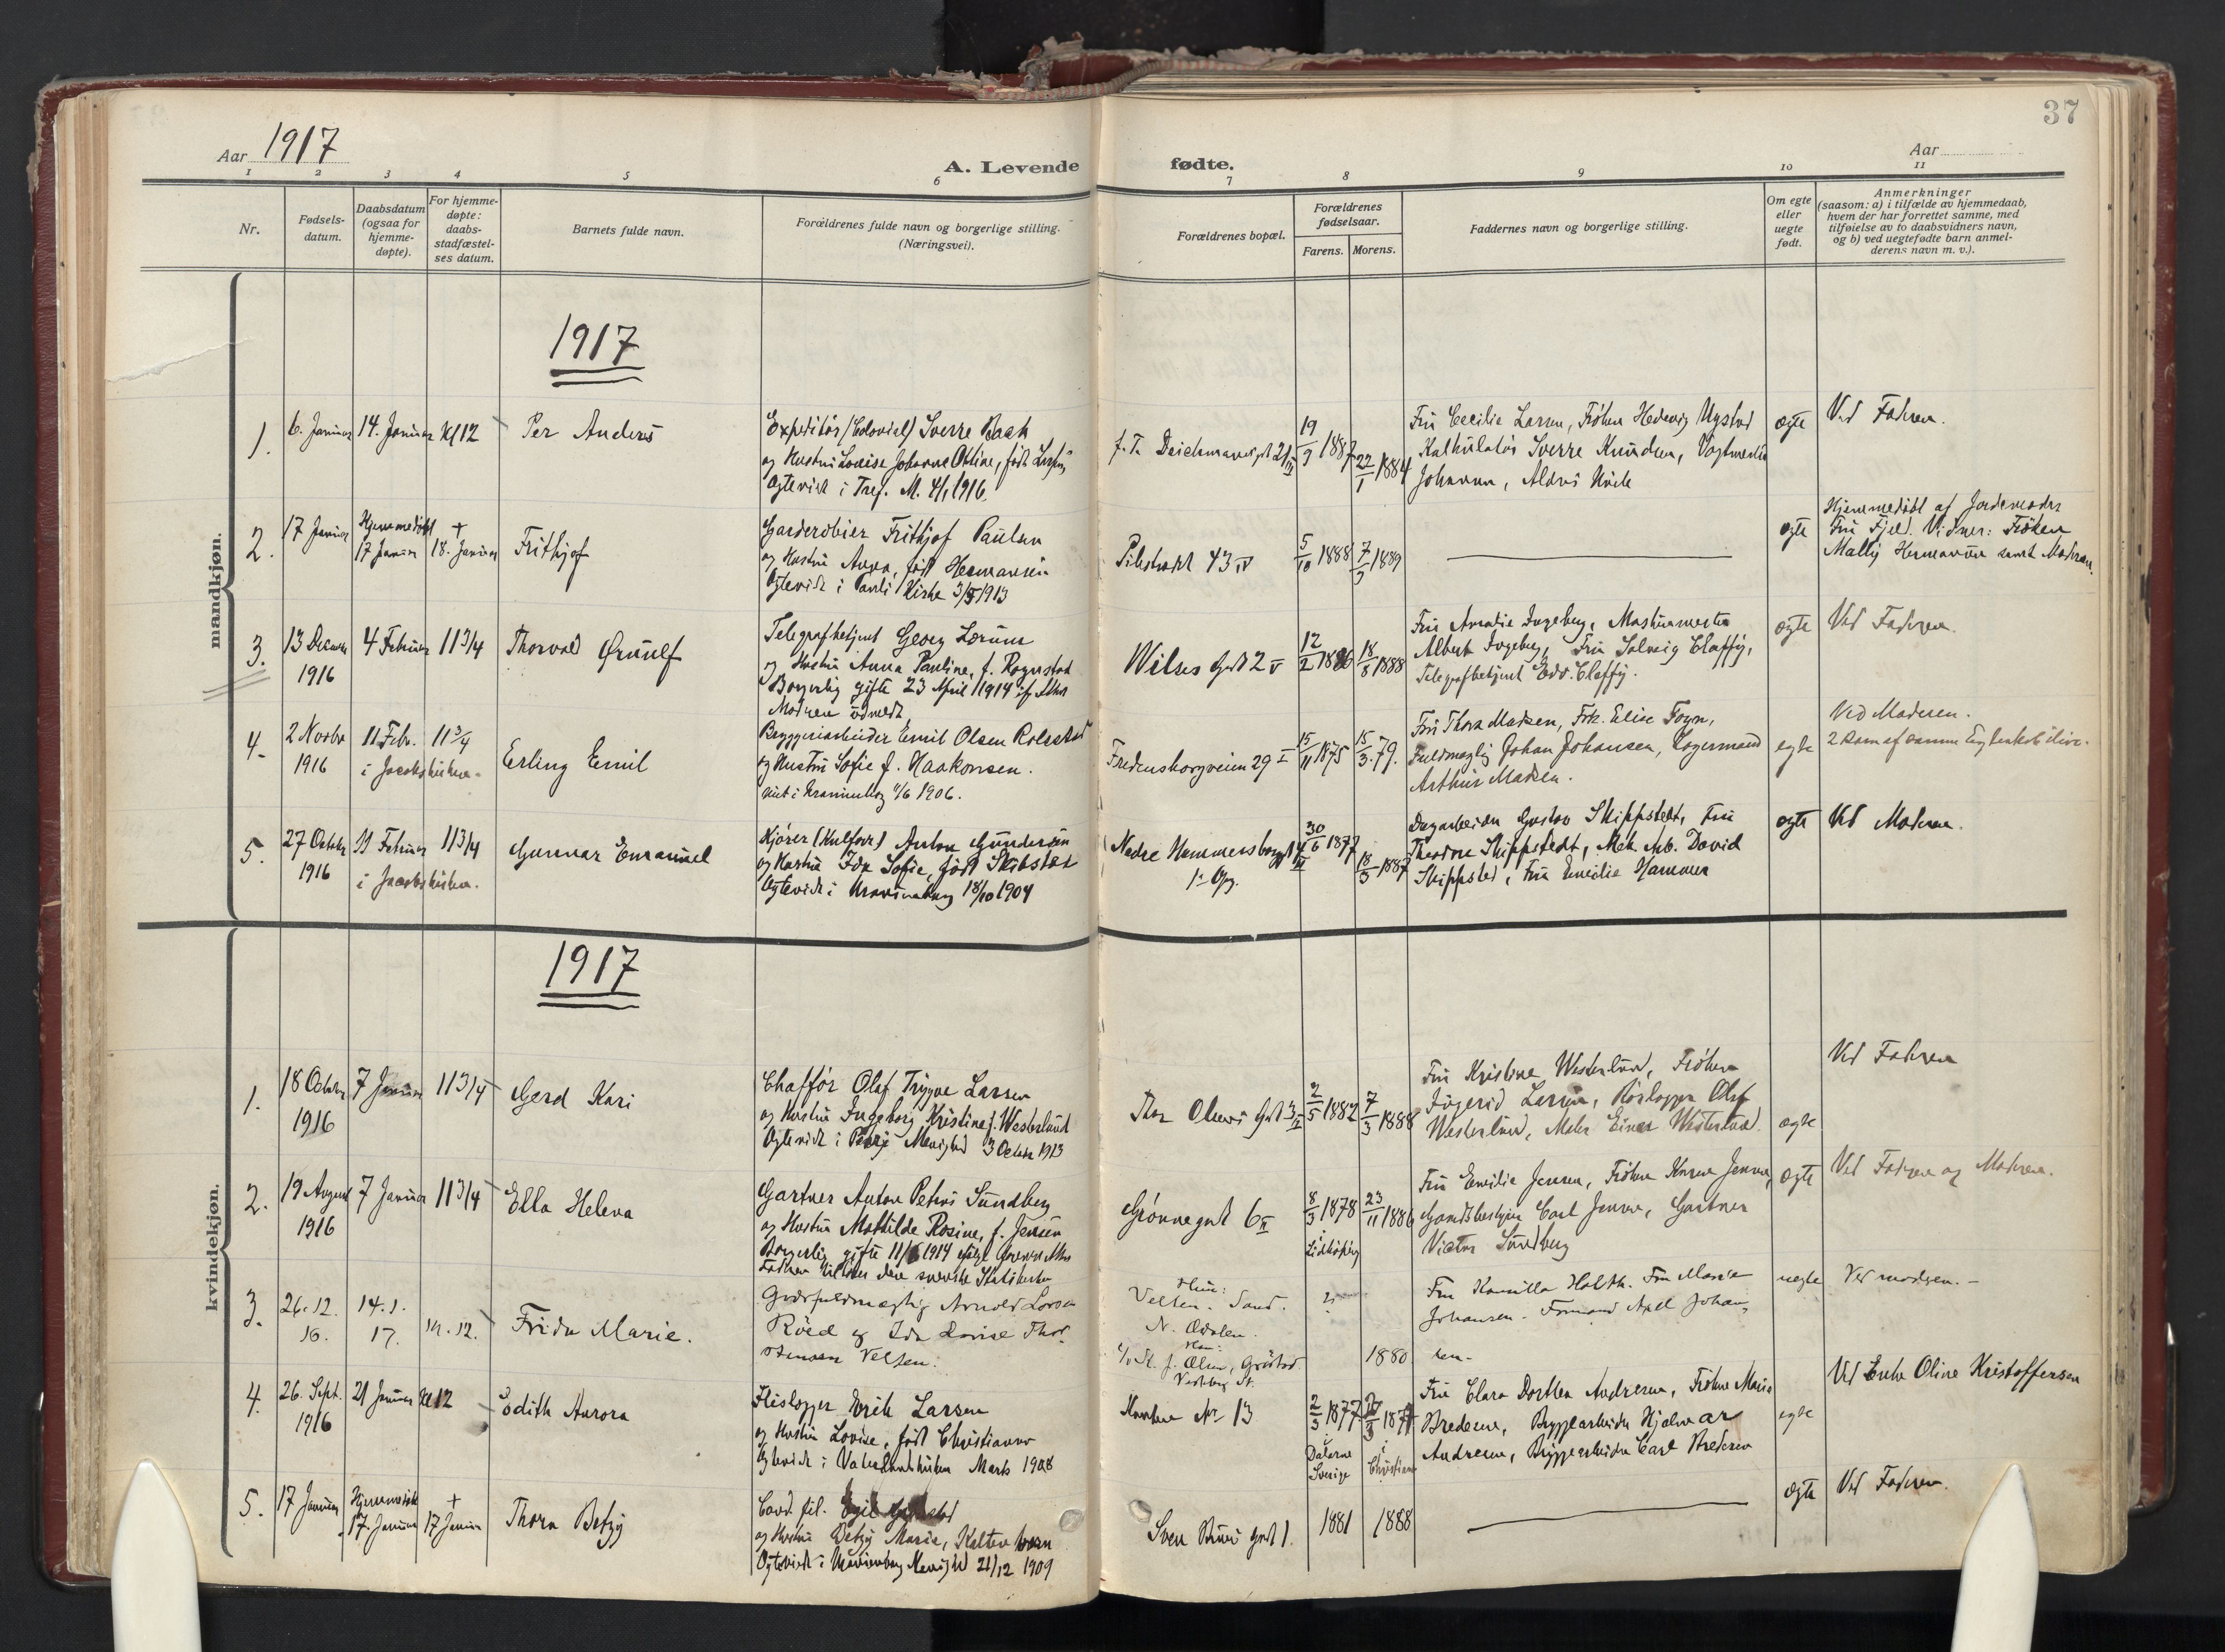 37
Aar 1917
Aar
A. Levende fødte.
1 2 3 4 5 6 7 8 9 10 11
Nr.
Fødsels-
datum.
Daabsdatum
(ogsaa for
hjemme-
døpte).
For hjemme-
døpte:
daabs-
stadfæstel-
ses datum.
Barnets fulde navn.
Forældrenes fulde navn og borgerlige stilling.
(Næringsvei).
Forældrenes bopæl.
Forældrenes
fødselsaar.
Farens. Morens.
Faddernes navn og borgerlige stilling.
Om egte
eller
uegte
født.
Anmerkninger
(saasom: a) i tilfælde av hjemmedaab,
hvem der har forrettet samme, med
tilføielse av to daabsvidners navn,
og b) ved uegtefødte barn anmel-
derens navn m. v.).
mandkjøn.
1917
1. 6. Januar 14. Januar Kl 12 Per Anders
Expeditør (Colonial) Sverre Bach
og Hustru Louise Johanne Othine, født
Ægteviet i Tref. M. 4/1 1916.
f. T. Deichmansgt 21
19/9 1887 22/1 1884
Fru Cecilie Larsen, Frøken Hedevig Nystad
Kalkulatør Sverre Knudsen, Vagtmester
Johansen, Aldrei
ægte
Ved Faderen.
2. 17 Januar Hjemmedøbt
17 Januar
+
18. Januar
Frithjof
Garderobier Frithjof Paulsen
og Hustru Anna, født Hermansen
Ægteviet i Pauli Kirke 3/5 1913
Pilestrædet 43 IV
5/10 1888 7/9 1889
ægte
Hjemmedøbt af Jordemoder
Fru Fjeld. Vidner: Frøken
Mally Hermansen samt Moderen.
3. 13 Decemb
1916
4 Februar 11 3/4 Thorvald Ørnulf
Telegrafbetjent Georg Lorum
og Hustru Anna Pauline, f. Rognstad
Borgerlig gifte 23 April 1914
Moderen udmeldt
Wilses Gade 2 V
12/2 1886 18/8 1888
Fru Amalie Ingeberg, Maskinmester
Albert Ingeberg, Fru Solveig Claffy,
Telegrafbetjent Edv. Claffy.
ægte
Ved Faderen.
4. 2 Novbr
1916
11 Febr.
i Jacobskirken.
11 3/4
Erling Emil
Bryggeriarbeider Emil Olsen Rolsstad
og Hustru Sofie f. Haakonsen.
viet i Kroninsborg 4/6 1906.
Fredensborgveien 29 I
15/11 1875 15/3 79.
Fru Thora Madsen, Frk. Elise Foyn,
Fuldmægtig Johan Johansen, Lagermand
Arthur Madsen.
egte
Ved Moderen.
2 Barn af samme Egteskab ilive.
5. 27 October
1916
11 Februar
i Jacobskirken.
11 3/4
Gunnar Emanuel
Kjører (Kulforr) Anton Gundersen
og Hustru Ida Sofie, født Skibstæd
Ægteviet i 18/10 1904
Nedre Hammersborggt
1ste Opg.
30/6 1877 18/3 1887
Dagarbeider Gustav Skippstedt, Fru
Theodora Skippstedt, Mek. Arb. David
Skippsted, Fru Emilie Hammer
ægte
Ved Moderen.
kvindekjøn.
1917
1. 18 October
1916
7 Januar 11 3/4 Gerd Kari
Chaffør Olaf Trygve Larsen
og Hustru Ingeborg Kristine f. Westerlund
Ægteviet i Menighed 3 October 1913
Thor Olsens Gade 3
2/5 1882 7/3 1888
Fru Kristine Westerlund, Frøken
Ingerid Larsen, Rørlægger Olaf
Westerlund, Maler Einar Westerlund.
ægte
Ved Faderen
2. 19 August
1916
7 Januar 11 3/4 Ella Helena
Gartner Anton Petrus Sundberg
og Hustru Mathilde Rosine, f. Jensen
Borgerlig gifte 11/6 1914 ifølge foreviset Attest
Faderen tilhører den svenske Statskirke
Grønnegade 6 II
8/3 1878 23/11 1886
i Lidköping
Fru Emilie Jensen, Frøken Karen Jensen,
Carl Jensen, Gartner
Victor Sundberg
ægte
Ved Faderen og Moderen.
3. 26. 12.
16.
14. 1.
17.
kl. 12. Frida Marie.
Gaardsfuldmægtig Arnold Lorsen
Røed og Ida Lovise Thor
stensen Velten.
Hun:
Velten. Sand.
N. Odalen.
Han:
1880
Fru Kamilla Holth. Fru Marie
Johansen. Formand Axel Johan
sen.
uegte
Ved moderen.
4. 26. Sept.
1916
21 Januar Kl 12 Edith Aurora
Flislægger Erik Larsen
og Hustru Lovise, født Christiansen
Ægteviet i Vaterlandskirken Marts 1908
No 13
2/3 1877
i
Dalarne
Sverige
i
Christiania
Fru Clara Dorthea Andresen, Frøken Marie
Bredesen, Bryggearbeider Hjalmar
Andresen, Bryggearbeider Carl Bredesen
egte
Ved Enke Oline Kristoffersen
5. 17 Januar Hjemmedøbt
17. Januar
+
17 Januar
Thora Betzy
Cand. fil. Egil
og Hustru Betzy Marie, Kaltenborn
Ægteviet i Menighed 21/12 1909
Sven Bruns Gade 1.
1881 1888
ægte
Ved Faderen.